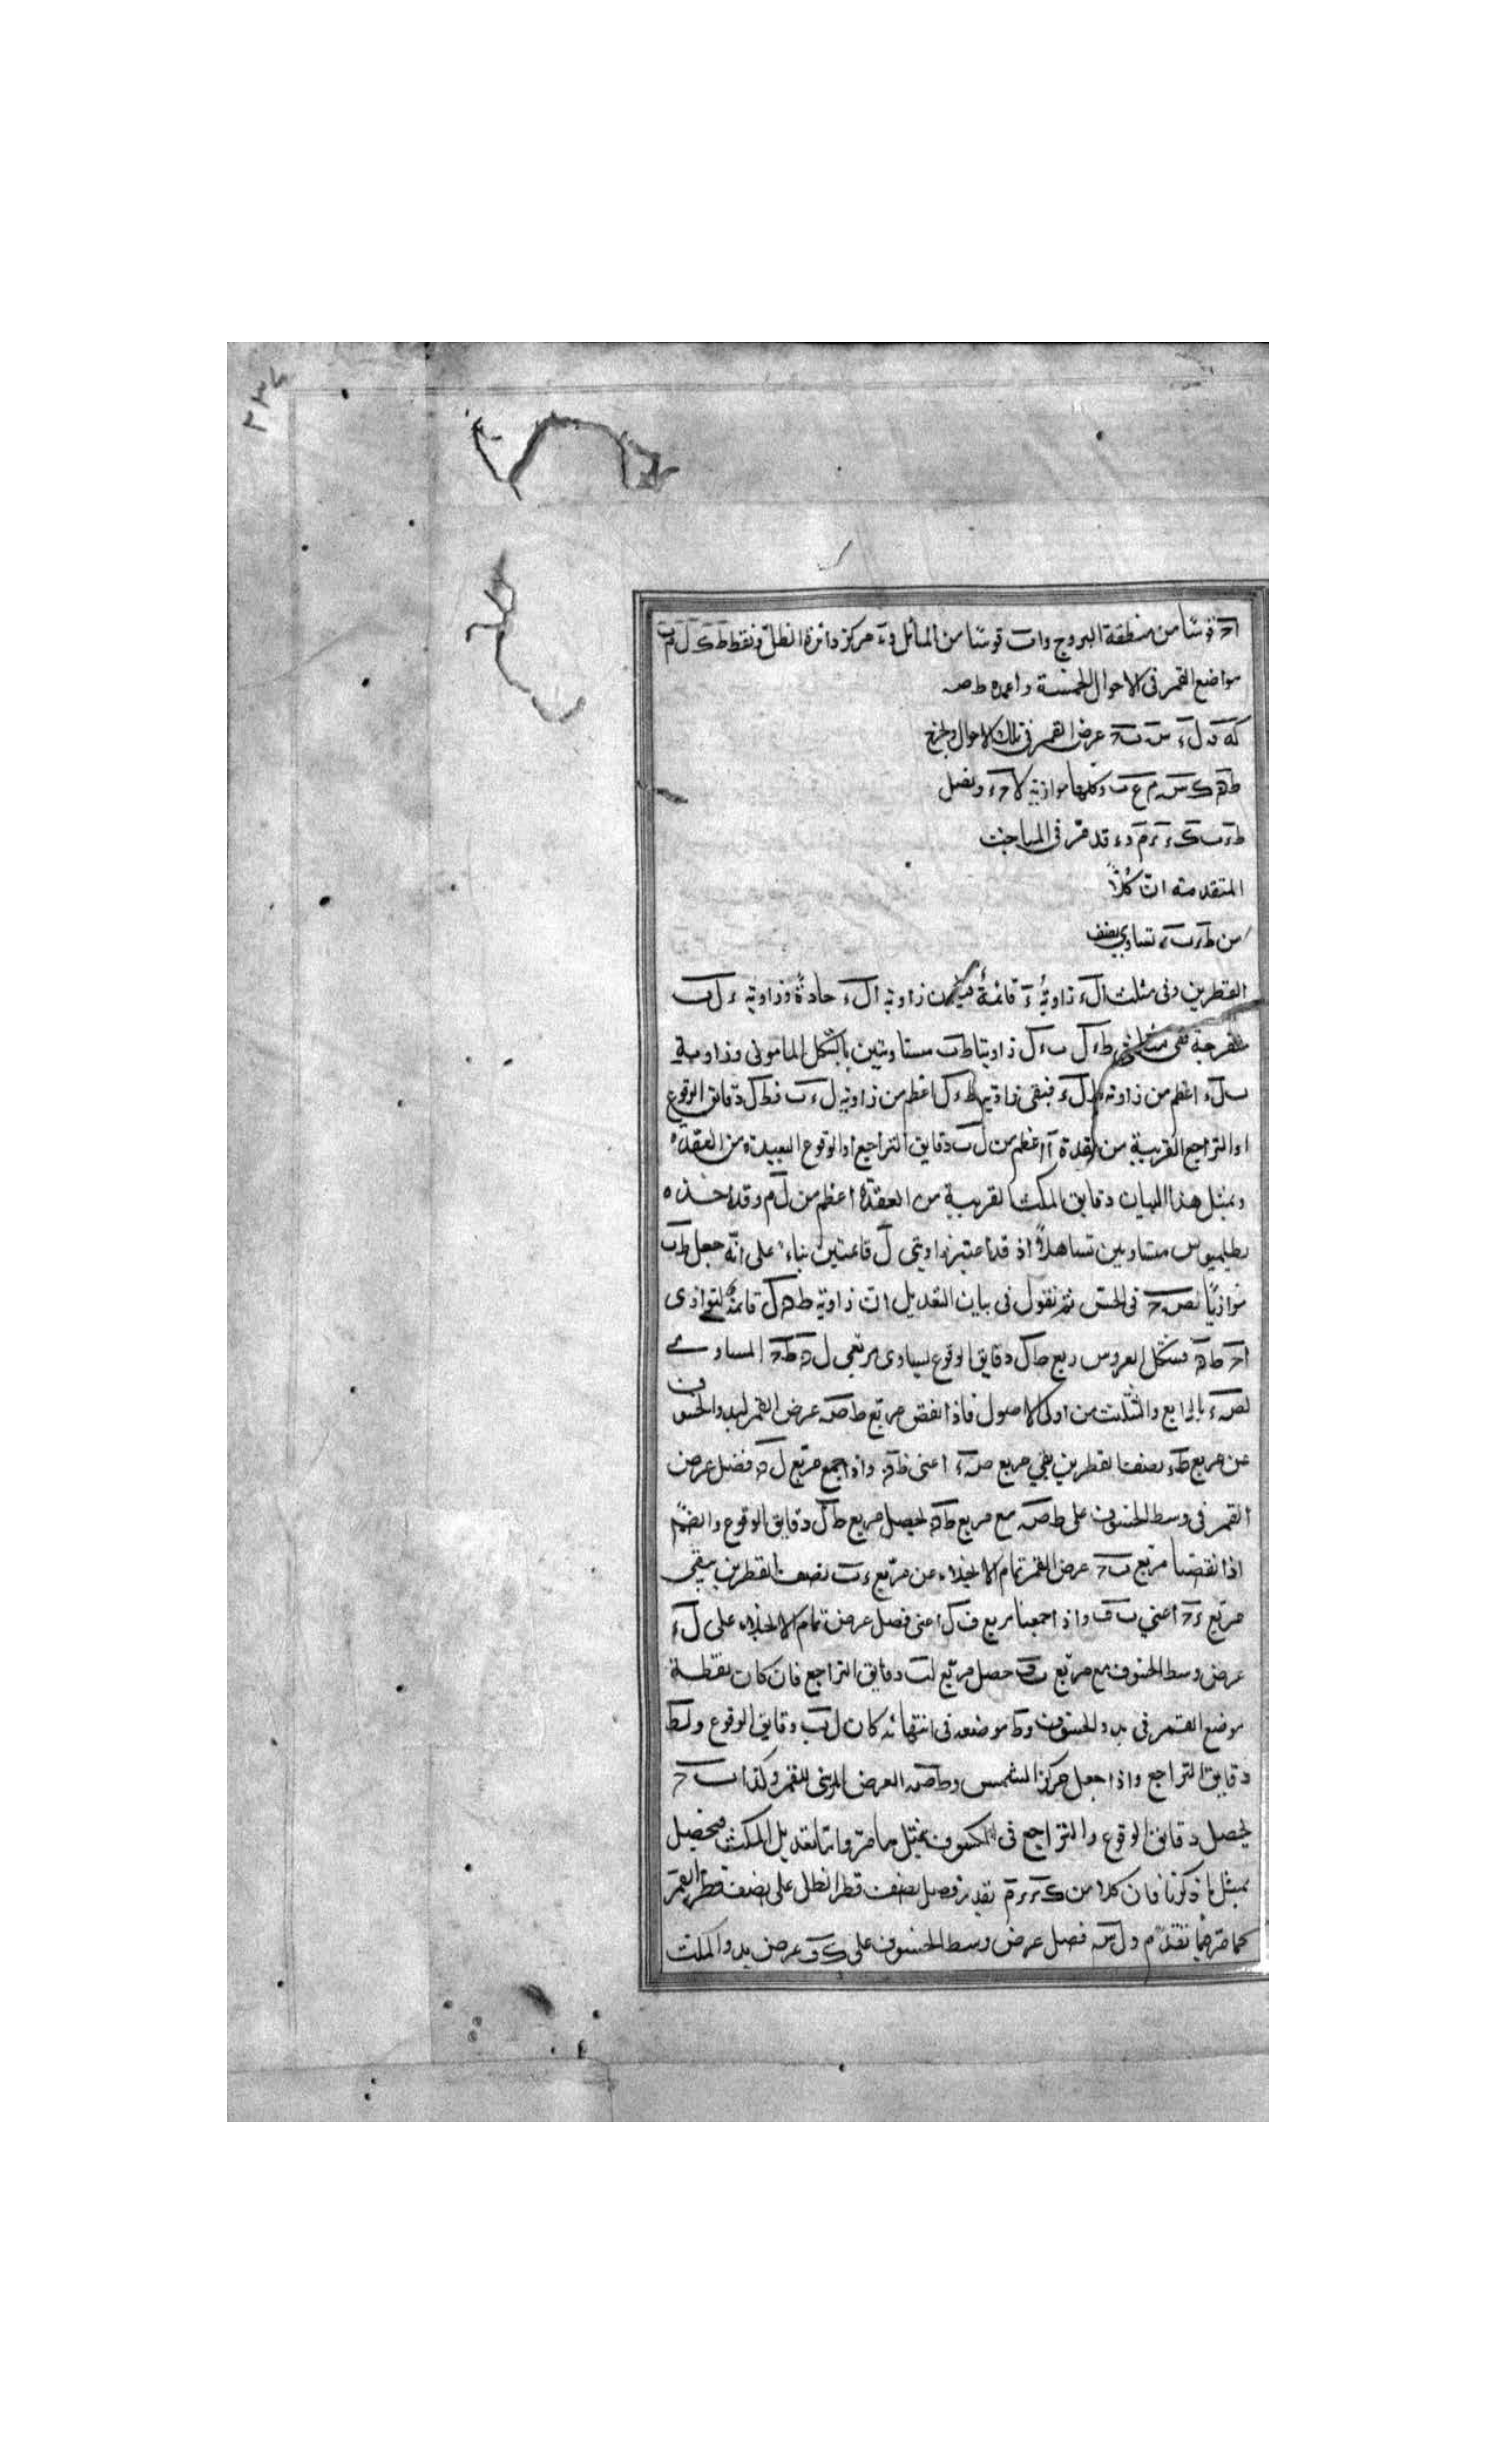 ٢٣٧
اح قوسًا من منطقة البروج واب قوسًا من المائل وء مركز دائرة الظل ونقط ط ك ل م ب
مواضع القمر في الاحوال الخمسة واعمدة ط صہ
عرض القمر في تلك الاحوال ولنخرج
وكلها موازية لا ح ونصل
قد مرّ في المباحث
المتقدمة انّ كلًّا
من ط ء ب ء تساوي نصف
القطرين وفي مثلث ا ل ء زاوية ء قائمة فيكون زاوية ا ل ء حادةً وزاوية ء ل ب
منفرجة ففي مثلثي ط ء ل ب ء ل زاويتا ط ب متساويتين بالشكل الماموني وزاوية
ب ل ء اعظم من زاوية ط ل ء فيبقى زاوية ط ء ل اعظم من زاوية ل ء ب فط ل دقايق الوقوع
او التراجع القريبة من العقدة ا اعظم من ل ب دقايق التراجع او الوقوع البعيدة من العقدة
وبمثل هذا البيان دقايق المكث القريبة من العقدة اعظم من ل م وقد اخذه
بطليموس متساويين تساهلًا اذ قد اعتبر زاويتي ل قائمتين بناء على انّه جعل ط ب
موازيًا لصہ ح في الحسّ ثم نقول في بيان التعديل انّ زاوية ط ه ل قائمة لتوازي
اح ط ه فبشكل العروس مربع ط ل دقايق الوقوع يساوى مربعي ل ه ط ه المساوي
لصہ ء بالرابع والثلثين من اولى الاصول فاذا نقص مربّع ط صہ عرض القمر لبدو الخسوف
عن مربع ط ء نصف القطرين بقي مربع صہ ء اعنى ط ه واذا جمع مربّع ل ه فضل عرض
القمر في وسط الخسوف على ط صہ مع مربع ط ه لحصل مربع ط ل دقايق الوقوع وايضًا
اذا نقصنا مربّع ب ح عرض القمر تمام الانجلاء عن مربّع ء ب نصف القطرين بقي
مربّع ء ح اعني ب ف واذا جمعنا مربع ف ل اعنى فضل عرض تمام الانجلاء على ل ء
عرض وسط الخسوف مع مربّع ب ف حصل مربّع ل ب دقايق التراجع فان كان نقطة
موضع القمر في بدو الخسوف وط موضعه في انتهائه كان ل ب دقايق الوقوع ول ط
دقايق التراجع واذا جعل مركز الشمس وط صہ العرض المرئي للقمر وكذا ب ح
يحصل دقايق الوقوع والتراجع في الكسوف بمثل ما مرّ وامّا تعديل المكث فيحصل
بمثل ما ذكرنا فان كلا من ك ء ء م بقدر فصل نصف قطر الظل على نصف قطر القمر
كما مرّ فيما تقدّم ول سہ فصل عرض وسط الخسوف على ك ف عرض بدو المكث